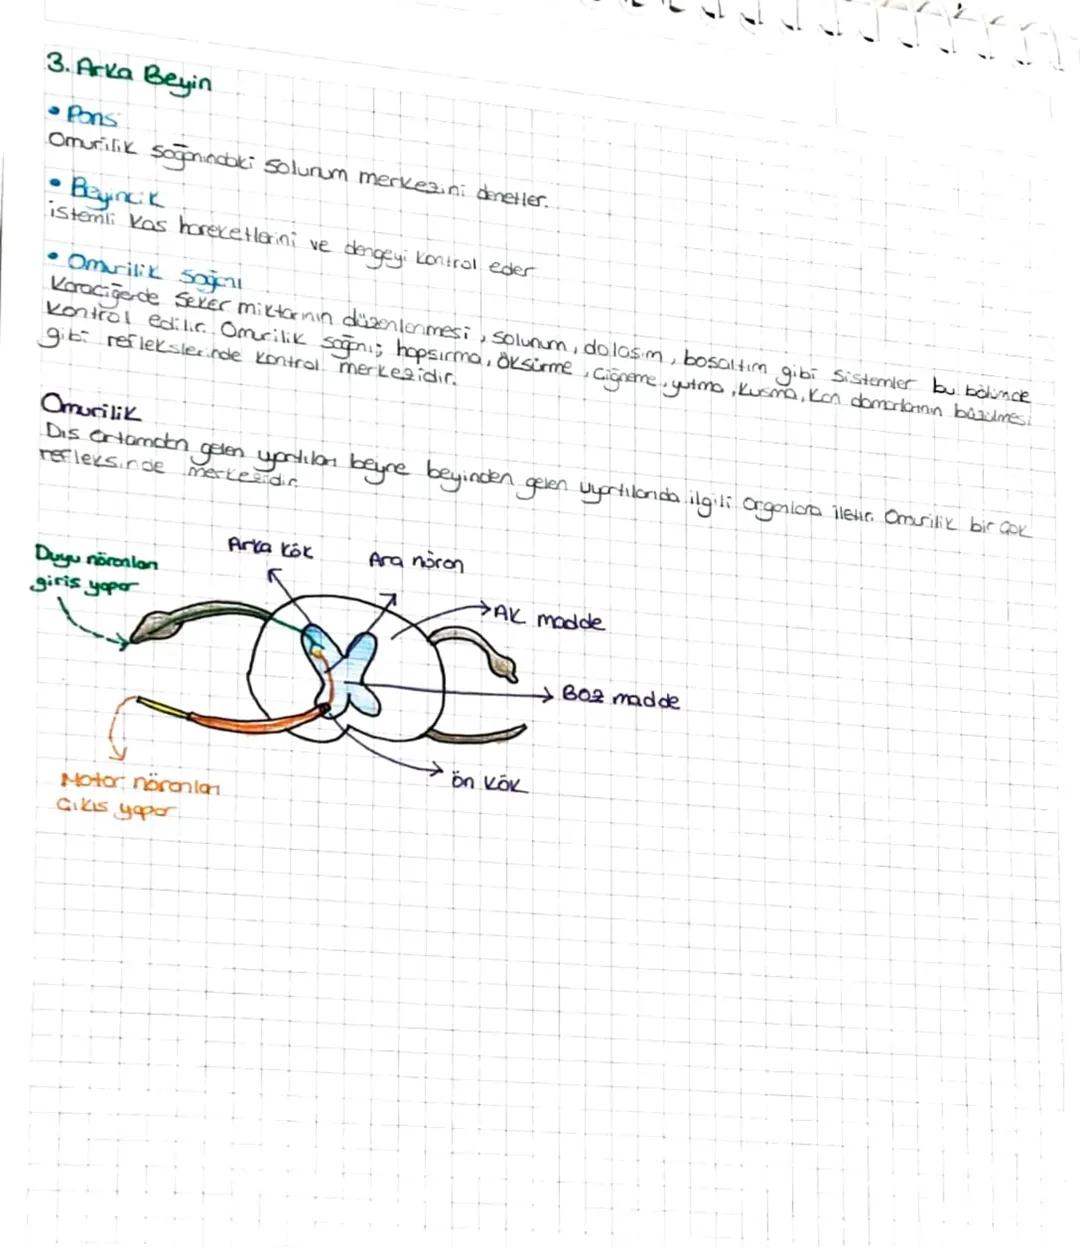 3. Arka Beyin
• Pons
Omurilik soğanındaki solunum merkezini denetler.
• Beyincik
istemli kas hareketlerini ve dengeyi kontrol eder
• Omurilik Soğanı
Karaciğerde şeker miktarının düzenlenmesi, solunum, dolaşım, boşaltım gibi sistemler bu bölümde
kontrol edilir. Omurilik soğanı; hapşırma, öksürme, çiğneme, yutma, kusma, kan damarlarının büzülmesi
gibi reflekslerinde kontrol merkezidir.
Omurilik
Dış ortamdan gelen uyartıları beyne beyinden gelen uyartılarıda ilgili organlara iletir. Omurilik bir çok
refleksinde merkezidir.
Arka kök
Ara nöron
Duyu nöronları
giriş yapar
Ak madde
Boz madde
ön kök
Motor nöronları
Çıkış yapar